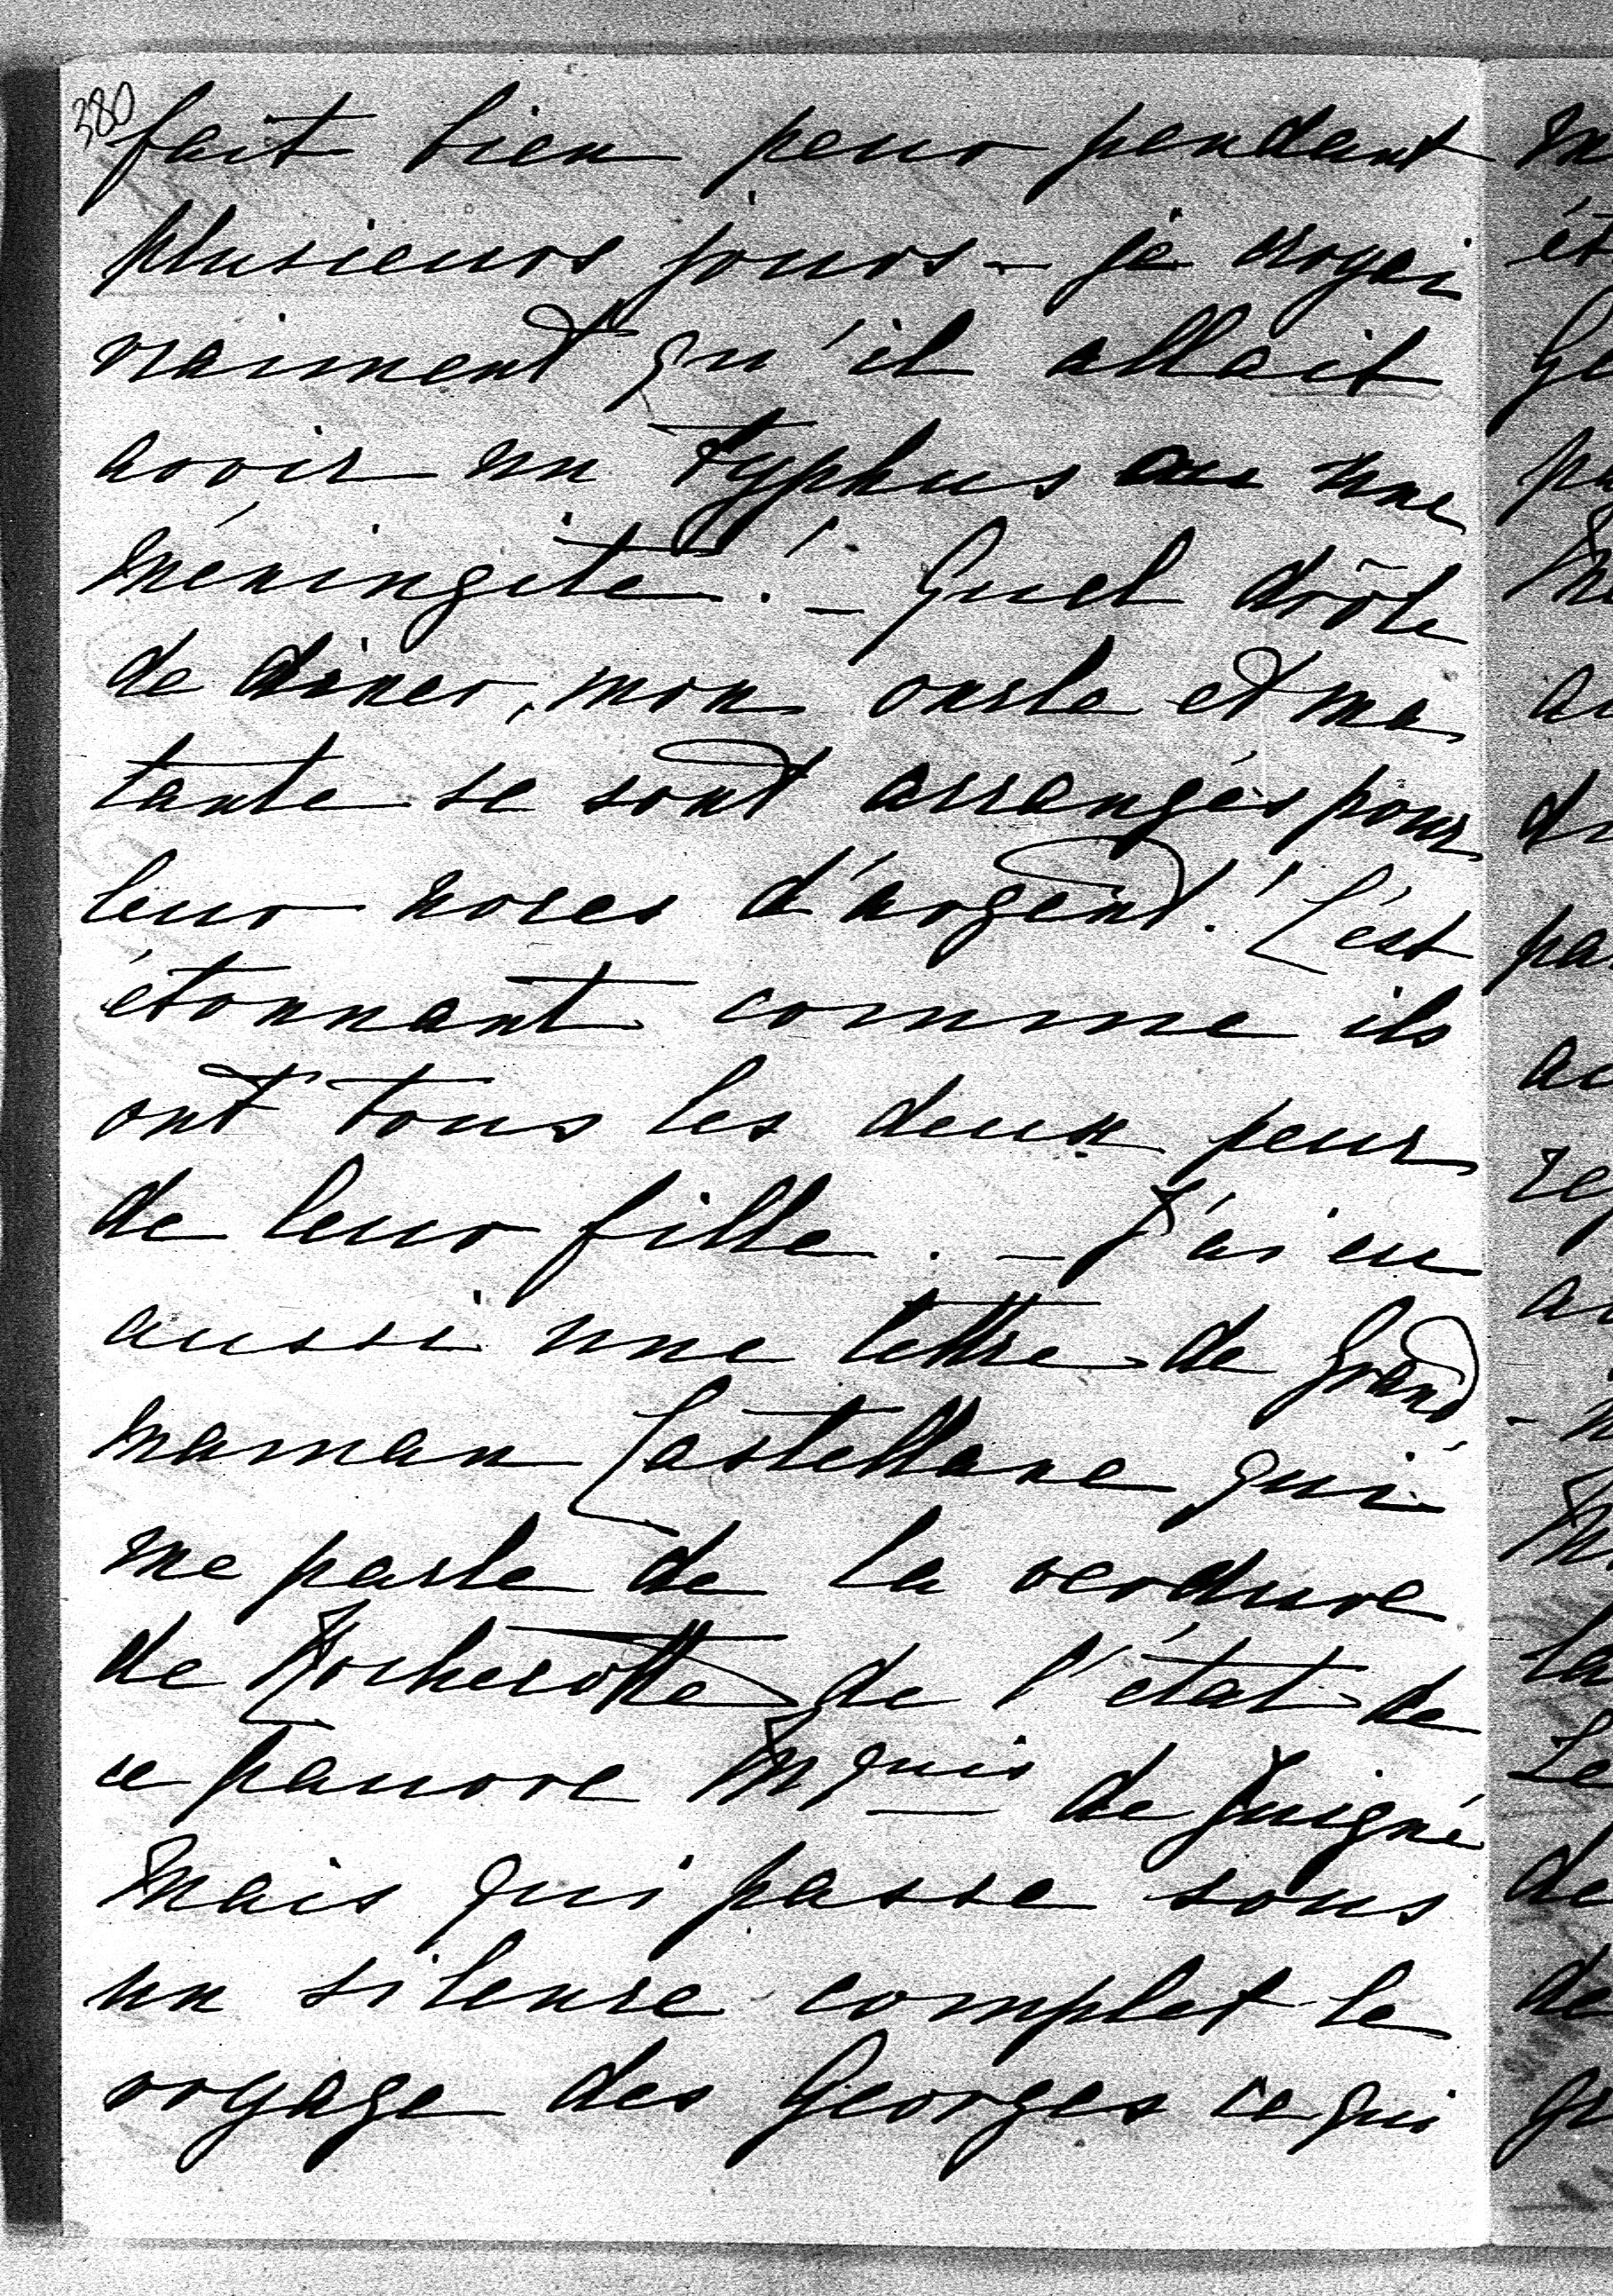 380
fait bien peur pendant
plusieurs jours – je croyai
vraiment qu'il allait
avoir un typhus ou une
méningite ! – Quel drôle
de diner, mon oncle et ma
tante se sont arrangés pour
leur noces d'argent ! C'est
étonnant comme ils
ont tous les deux peur
de leur fille. – J'ai eu
aussi une lettre de Grand
maman Castellane qui
me parle de la verdure
de Rochecotte de l'état de
ce pauvre Mquis de Juigné
mais qui passe sous
un silence complet le
voyage des Georges ce qui